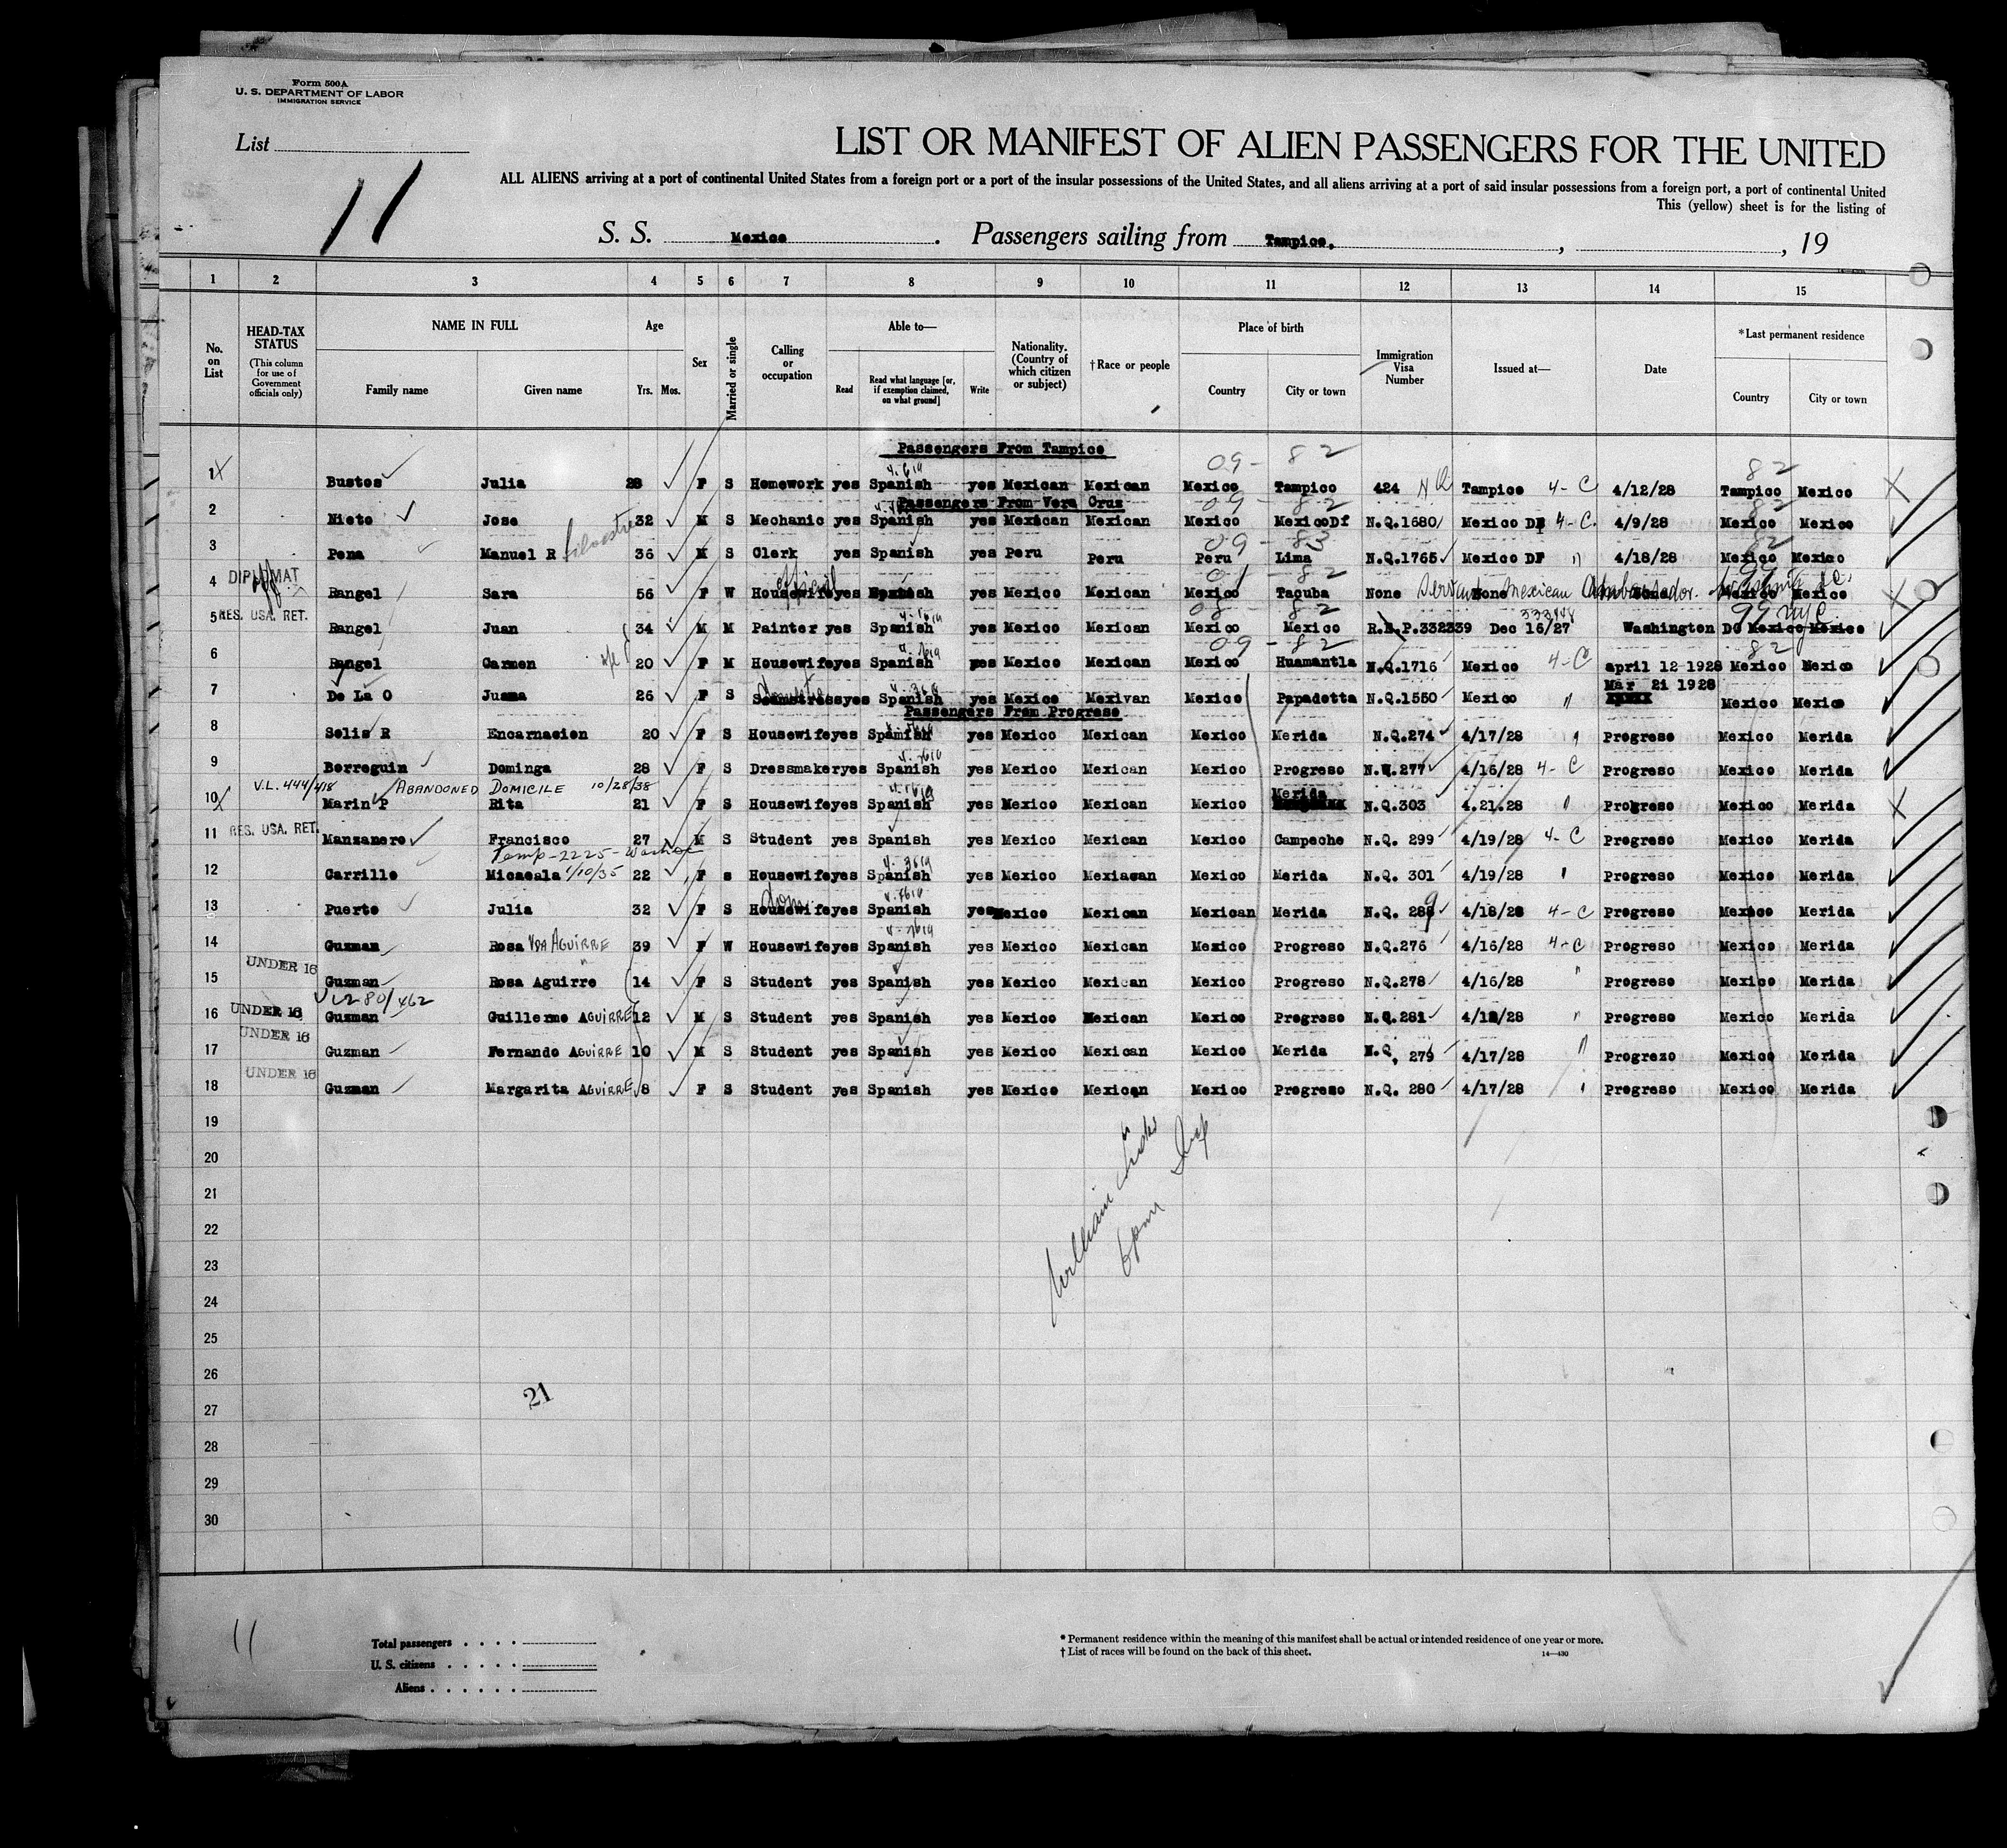 Form 500A
U. S. DEPARTMENT OF LABOR
IMMIGRATION SERVICE
List
11
LIST OR MANIFEST OF ALIEN PASSENGERS FOR THE UNITED
ALL ALIENS arriving at a port of continental United States from a foreign port or a port of the insular possessions of the United States, and all aliens arriving at a port of said insular possessions from a foreign port, a port of continental United
This (yellow) sheet is for the listing of
S. S. Mexico. Passengers sailing from Tampico, , 19
1 2 3 4 5 6 7 8 9 10 11 12 13 14 15
No. on List
HEAD-TAX STATUS (This column for use of Government officials only)
NAME IN FULL Family name Given name
Age Yrs. Mos.
Sex
Married or single
Calling or occupation
Able to— Read Read what language [or, if exemption claimed, on what ground] Write
Nationality. (Country of which citizen or subject)
† Race or people
Place of birth Country City or town
Immigration Visa Number
Issued at—
Date
* Last permanent residence Country City or town
Passengers From Tampico
09 - 82 82
1 Bustos Julia 28 F S Homework yes Spanish yes Mexican Mexican Mexico Tampico 424 NQ Tampico 4-C 4/12/28 Tampico Mexico
Passengers From Vera Cruz
09 - 82 82
2 Nieto Jose 32 M S Mechanic yes Spanish yes Mexican Mexican Mexico MexicoDf N.Q.1680 Mexico DF 4-C. 4/9/28 Mexico Mexico
09 - 83 82
3 Pena Manuel R Silvestre 36 M S Clerk yes Spanish yes Peru Peru Peru Lima N.Q.1765 Mexico DF " 4/18/28 Mexico Mexico
DIPLOMAT official 01 - 82
4 Rangel Sara 56 F W Housewife yes yes Mexico Mexican Mexico Tacuba None Servant Mexican Ambassador. Mexico Mexico
RES. USA. RET. 08 - 82 333448 99 NYC
5 Rangel Juan 34 M M Painter yes Spanish yes Mexico Mexican Mexico Mexico R.E.P.332339 Dec 16/27 Washington DC Mexico Mexico
09 - 82 82
6 Rangel Carmen w/f 20 F M Housewife yes Spanish yes Mexico Mexican Mexico Huamantla N.Q.1716 Mexico 4-C april 12-1928 Mexico Mexico
Domestic Mar 21 1928
7 De La O Juama 26 F S Seamstress yes Spanish yes Mexico Mexivan Mexico Papadetta N.Q.1550 Mexico " Mexico Mexico
Passengers From Progreso
8 Solis R Encarnacion 20 F S Housewife yes Spanish yes Mexico Mexican Mexico Merida N.Q.274 4/17/28 " Progreso Mexico Merida
9 Berreguin Dominga 28 F S Dressmaker yes Spanish yes Mexico Mexican Mexico Progreso N.Q.277 4/16/28 4-C Progreso Mexico Merida
V.L. 444/418 ABANDONED DOMICILE 10/28/38 Merida
10 Marin P Rita 21 F S Housewife yes Spanish yes Mexico Mexican Mexico N.Q.303 4.21.28 " Progreso Mexico Merida
RES. USA. RET.
11 Manzanero Francisco 27 M S Student yes Spanish yes Mexico Mexican Mexico Campeche N.Q. 299 4/19/28 4-C Progreso Mexico Merida
Temp-2225-
12 Carrillo Micaeala 1/10/35 22 F s Housewife yes Spanish yes Mexico Mexiacan Mexico Merida N.Q. 301 4/19/28 " Progreso Mexico Merida
Dom.
13 Puerto Julia 32 F S Housewife yes Spanish yes Mexico Mexican Mexican Merida N.Q. 289 4/18/28 4-C Progreso Mexico Merida
14 Guzman Rosa VDA AGUIRRE 39 F W Housewife yes Spanish yes Mexico Mexican Mexico Progreso N.Q.276 4/16/28 4-C Progreso Mexico Merida
UNDER 16
15 Guzman Rosa Aguirre 14 F S Student yes Spanish yes Mexico Mexican Mexico Progreso N.Q.278 4/16/28 " Progreso Mexico Merida
UNDER 16
16 Guzman Guillermo AGUIRRE 12 M S Student yes Spanish yes Mexico Mexican Mexico Progreso N.Q.281 4/18/28 " Progreso Mexico Merida
UNDER 16
17 Guzman Fernando AGUIRRE 10 M S Student yes Spanish yes Mexico Mexican Mexico Merida N.Q. 279 4/17/28 " Progreso Mexico Merida
UNDER 16
18 Guzman Margarita AGUIRRE 8 F S Student yes Spanish yes Mexico Mexican Mexico Progreso N.Q. 280 4/17/28 " Progreso Mexico Merida
19
20
21
22
23
24
25
26
27
28
29
30
William
Insp
21
11
Total passengers
U. S. citizens
Aliens
* Permanent residence within the meaning of this manifest shall be actual or intended residence of one year or more.
† List of races will be found on the back of this sheet.
14—430